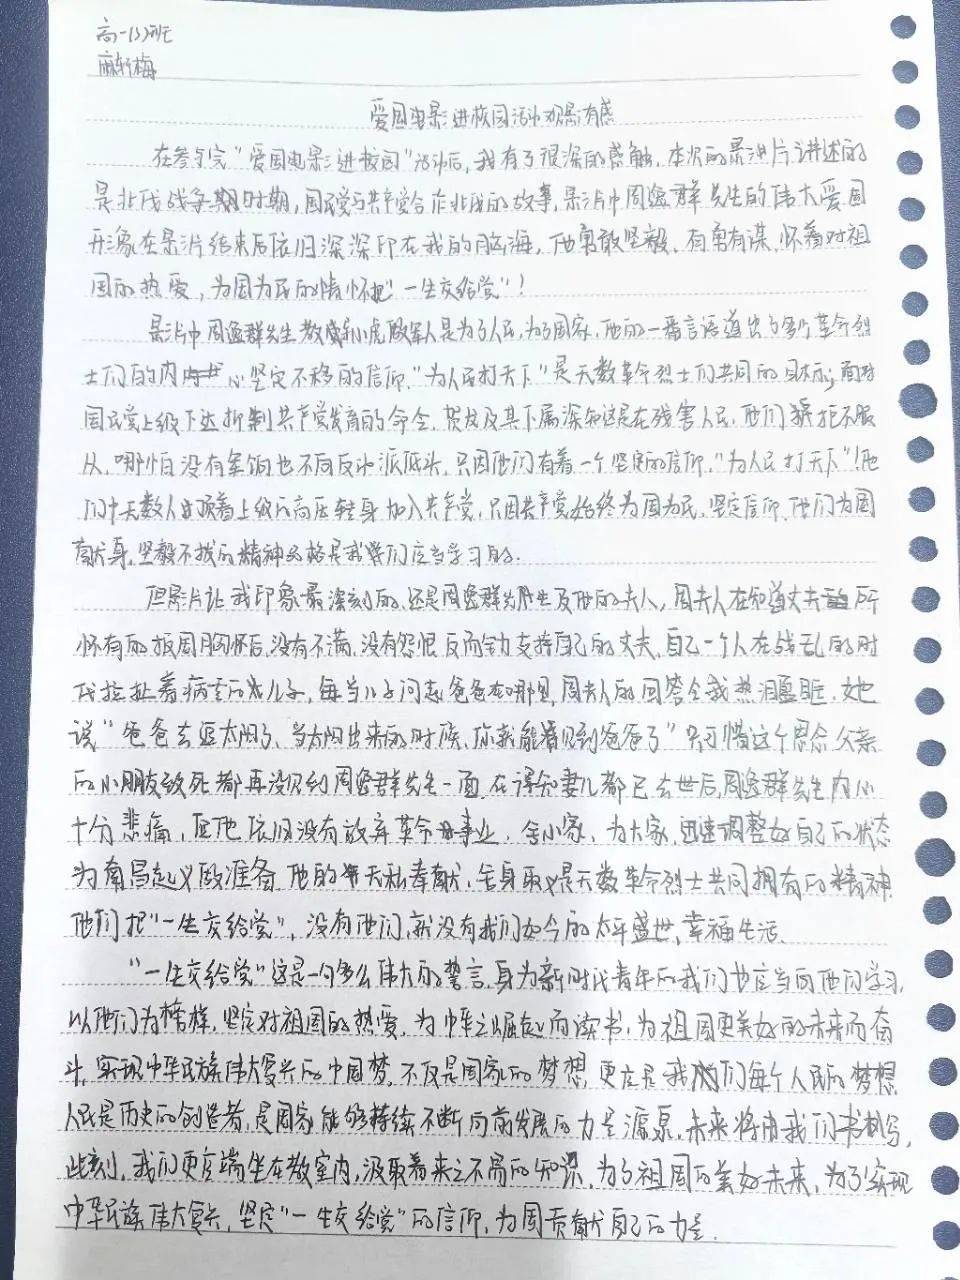 高一(3)班
麻轩梅
爱国电影进校园活动观影有感
在参与完"爱国电影进校园"活动后,我有了很深的感触,本次的影片讲述的
是北伐战争时期,国民党与共产党合作北伐的故事,影片中周逸群先生的伟大爱国
形象在影片结束后依旧深深印在我的脑海,他勇敢坚毅、有勇有谋,怀着对祖
国的热爱,为国为民的情怀把"一生交给党"!
影片中周逸群先生教小虎敬军人是为了人民,为了国家,他的一番言语道出了多个革命烈
士们的内心坚定不移的信仰,"为人民打天下"是无数革命烈士们共同的目标;面对
国民党上级下达抑制共产党发育的命令,贺龙及其下属深知这是在残害人民,他们拒不服
从,哪怕没有军饷也不向反动派低头,只因他们有着一个坚定的信仰,"为人民打天下"!他
们中无数人顶着上级的高压转身加入共产党,只因共产党始终为国为民,坚定信仰,他们为国
献身,坚毅不拔的精神始终是我们应当学习的.
但影片让我印象最深刻的,还是周逸群先生及他的夫人,周夫人在知道丈夫所
怀有的报国胸怀后,没有不满,没有怨恨反而全力支持自己的丈夫,自己一个人在战乱的时
代拉扯着病重的儿子,每当儿子问起爸爸在哪里,周夫人的回答令我热泪盈眶,她
说"爸爸去追太阳了,当太阳出来的时候,你就能看见到爸爸了"只可惜这个思念父亲
的小朋友致死都再没见到周逸群先生一面,在得知妻儿都已去世后,周逸群先生内心
十分悲痛,但他依旧没有放弃革命事业,舍小家,为大家,迅速调整好自己的状态
为南昌起义做准备,他的无私奉献,舍身取义是无数革命烈士共同拥有的精神
他们把"一生交给党",没有他们,就没有我们如今的太平盛世,幸福生活.
"一生交给党"这是一句多么伟大的誓言,身为新时代青年的我们也应当向他们学习,
以他们为榜样,坚定对祖国的热爱,为中华之崛起而读书,为祖国更美好的未来而奋
斗,实现中华民族伟大复兴的中国梦,不仅是国家的梦想,更应是我们每个人民的梦想
人民是历史的创造者,是国家能够持续不断向前发展的力量源泉,未来将由我们书写,
此刻,我们更应端坐在教室内,汲取着来之不易的知识,为了祖国的美好未来,为了实现
中华民族伟大复兴,坚定"一生交给党"的信仰,为国贡献自己的力量.